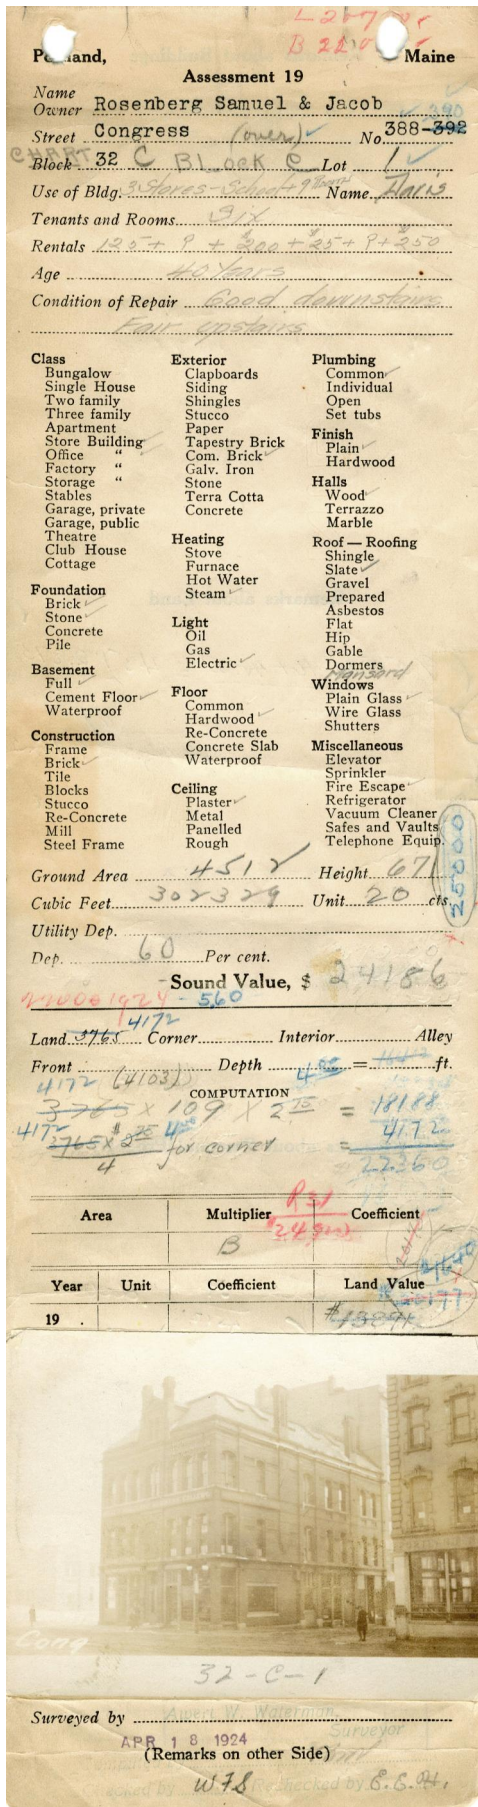 Portland, Maine
Assessment 19
Name
Owner Rosenberg Samuel & Jacob 390
Street Congress (over) No. 388-392
CHART
Block 32 C BLOCK C Lot 1
Use of Bldg. 3 Stores - School + Name
Tenants and Rooms Six
Rentals 125 + P + $200 + $25 + P + $250
Age 40 Years
Condition of Repair Good downstairs
Fair upstairs
Class
Bungalow
Single House
Two family
Three family
Apartment
Store Building
Office "
Factory "
Storage "
Stables
Garage, private
Garage, public
Theatre
Club House
Cottage
Foundation
Brick
Stone
Concrete
Pile
Basement
Full
Cement Floor
Waterproof
Construction
Frame
Brick
Tile
Blocks
Stucco
Re-Concrete
Mill
Steel Frame
Exterior
Clapboards
Siding
Shingles
Stucco
Paper
Tapestry Brick
Com. Brick
Galv. Iron
Stone
Terra Cotta
Concrete
Heating
Stove
Furnace
Hot Water
Steam
Light
Oil
Gas
Electric
Floor
Common
Hardwood
Re-Concrete
Concrete Slab
Waterproof
Ceiling
Plaster
Metal
Panelled
Rough
Plumbing
Common
Individual
Open
Set tubs
Finish
Plain
Hardwood
Halls
Wood
Terrazzo
Marble
Roof — Roofing
Shingle
Slate
Gravel
Prepared
Asbestos
Flat
Hip
Gable
Dormers
Mansard
Windows
Plain Glass
Wire Glass
Shutters
Miscellaneous
Elevator
Sprinkler
Fire Escape
Refrigerator
Vacuum Cleaner
Safes and Vaults
Telephone Equip.
25000
Ground Area 4512 Height 67
Cubic Feet 302329 Unit 20 cts.
Utility Dep.
Dep. 60 Per cent.
Sound Value, $ 24186
1924 - 560
4172
Land 3765 Corner Interior Alley
Front Depth = ft.
4172 (4103) 4.00
COMPUTATION
3765 x 109 x 2 75 = 18188
4172 3765 x $ 75 4 00 for corner = 4172
4 22360
Area Multiplier Coefficient
P31
$24900
B
21640
Year Unit Coefficient Land Value
19
Cong
32-C-1
Surveyed by Albert W. Waterman
Surveyor
APR 18 1924
(Remarks on other Side)
WFS E.E.H.